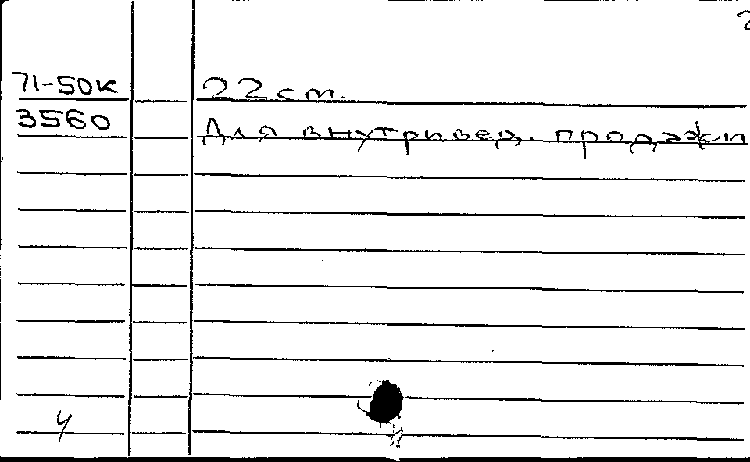 2
71-50к 22 cm.
3560 Для внутривед. продажи
4